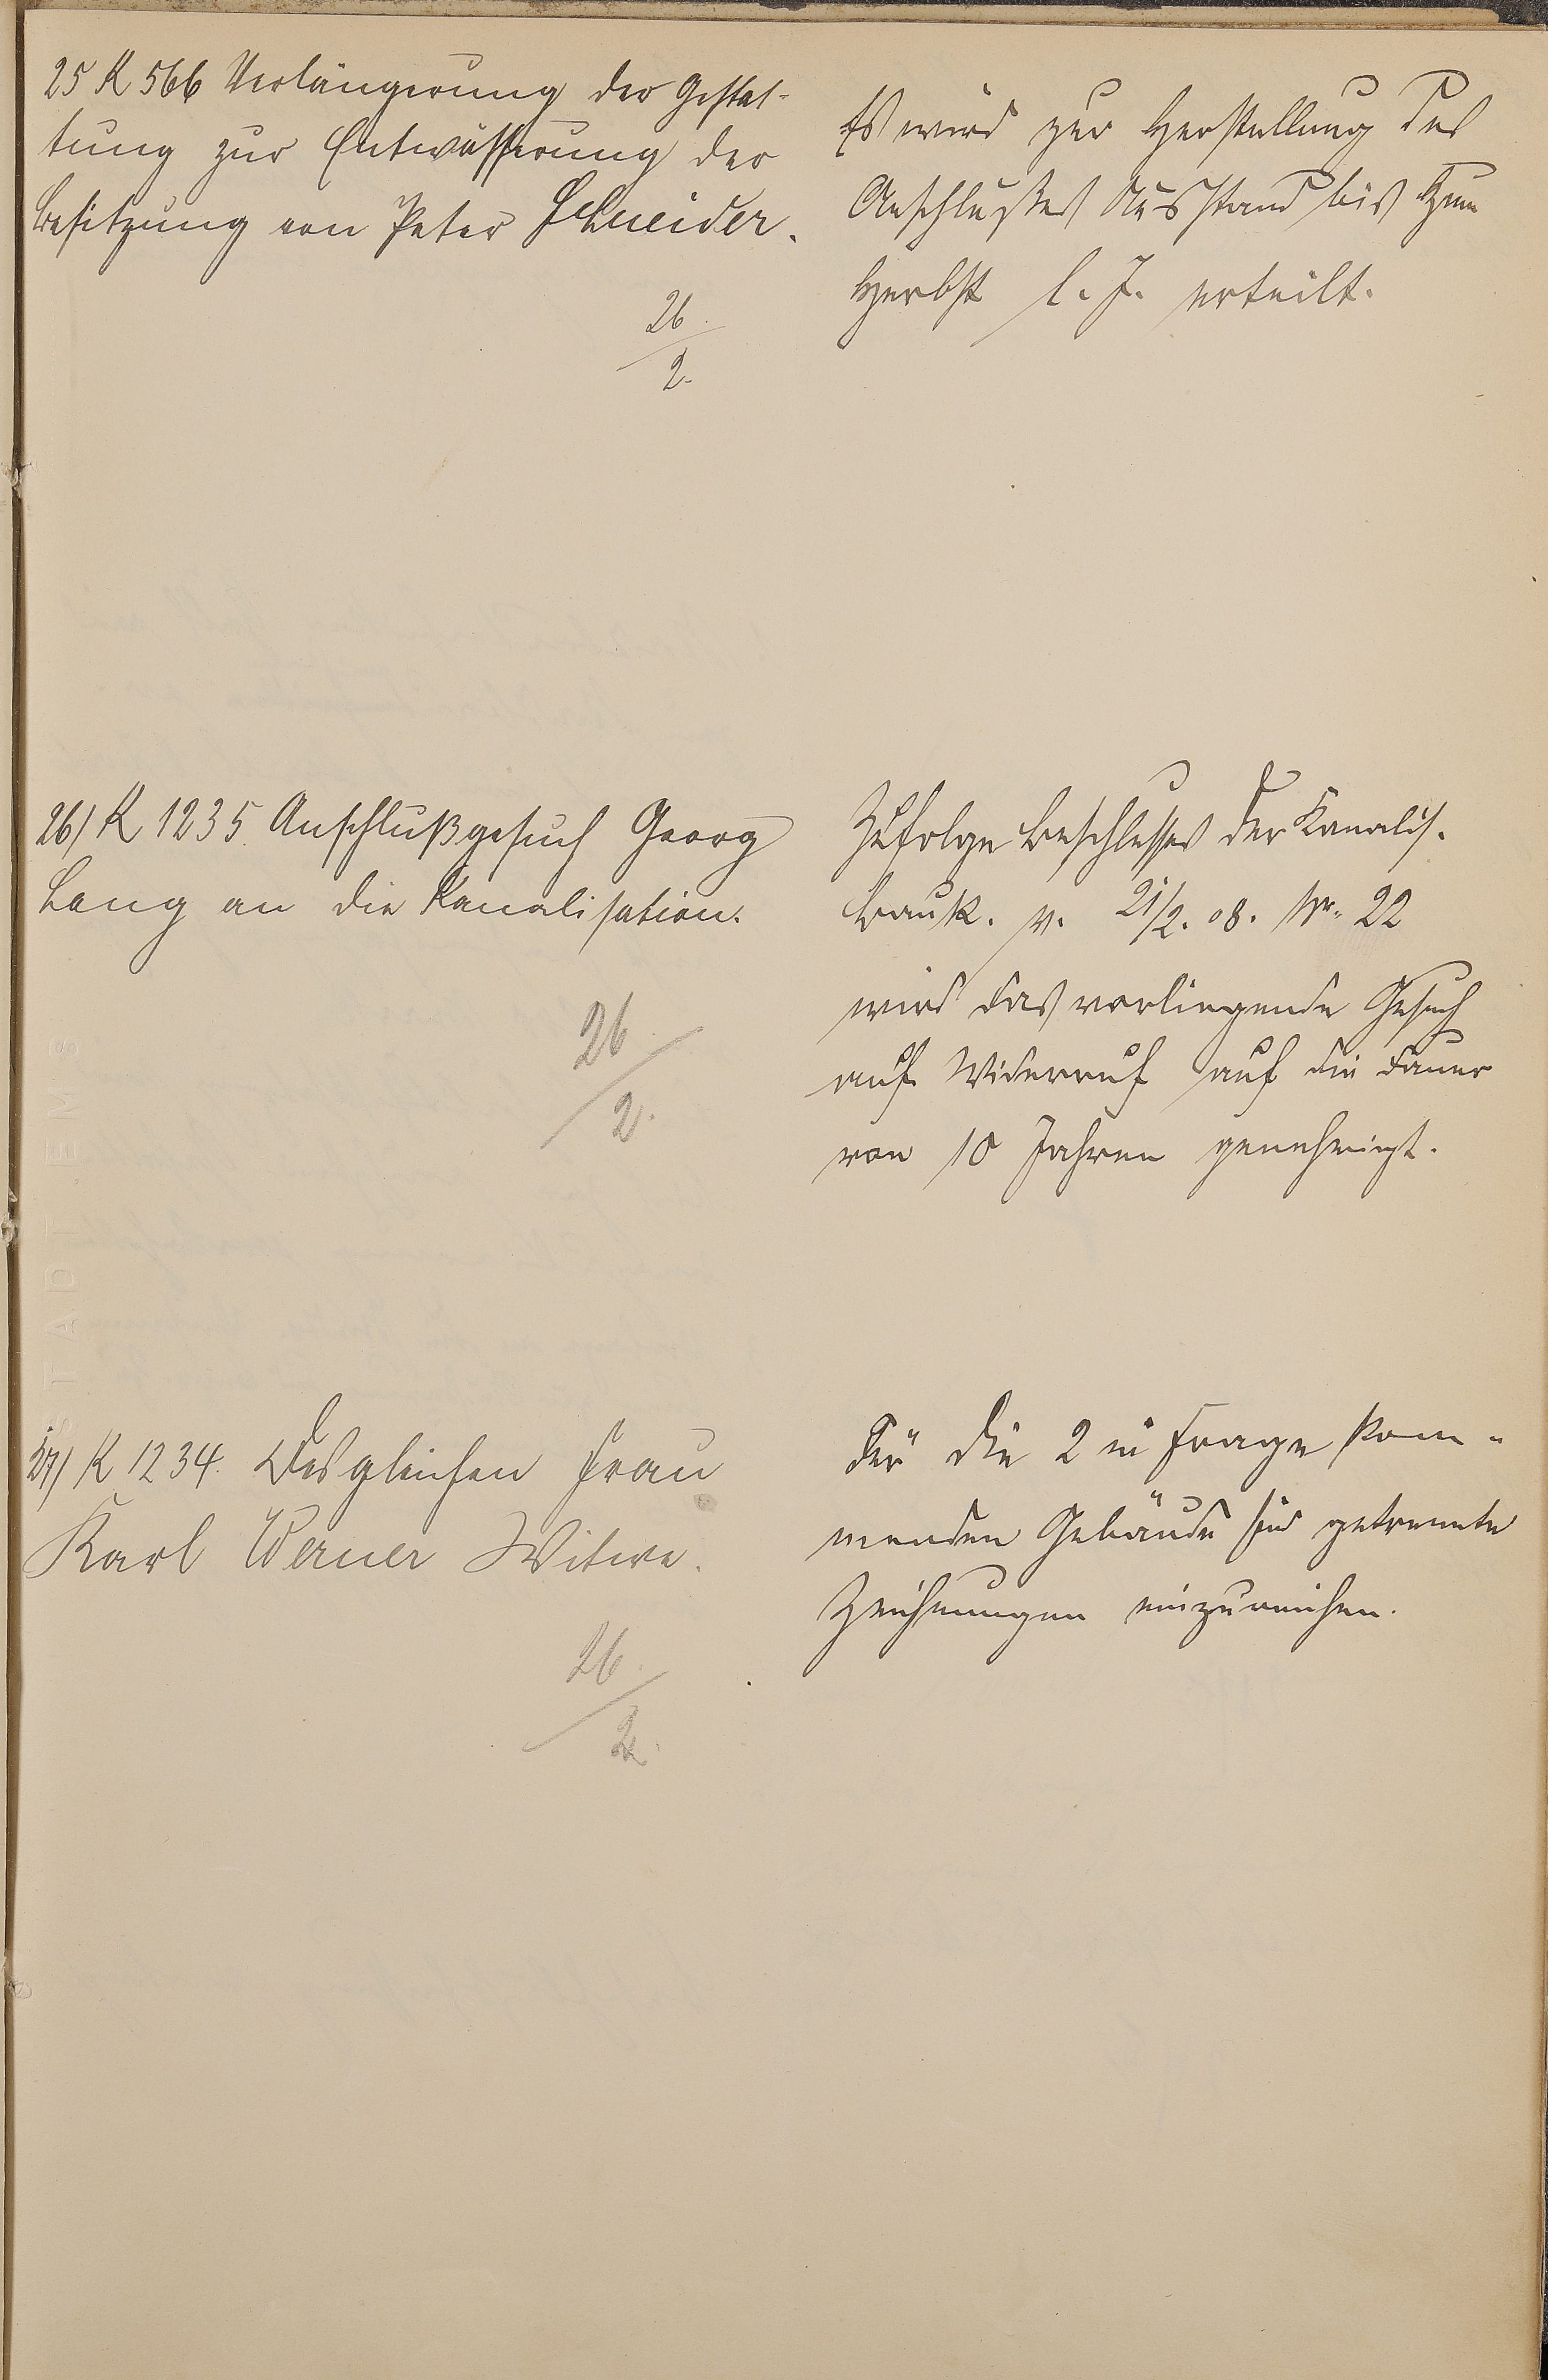 25 K 566 Verlängerung der Gestat-
tung zur Entwässerung der
Besitzung von Peter Schneider.
26.
2.
Es wird zur Herstellung des
Anschlußes Ausstand bis zum
Herbst l. J. erteilt.
26/ K 1235. Anschlußgesuch Georg
Lang an die Kanalisation.
26
2.
Zufolge Beschlusses der Kanalis.
Bauk. v. 21/2. 08. Nr. 22
wird das vorliegende Gesuch
auf Widerruf auf die Dauer
von 10 Jahren genehmigt.
27/ K 1234. Desgleichen Frau
Karl Werner Witwe.
26.
2.
Für die 2 in Frage kom-
menden Gebäude sind getrennte
Zeichnungen einzureichen.
STADT EMS